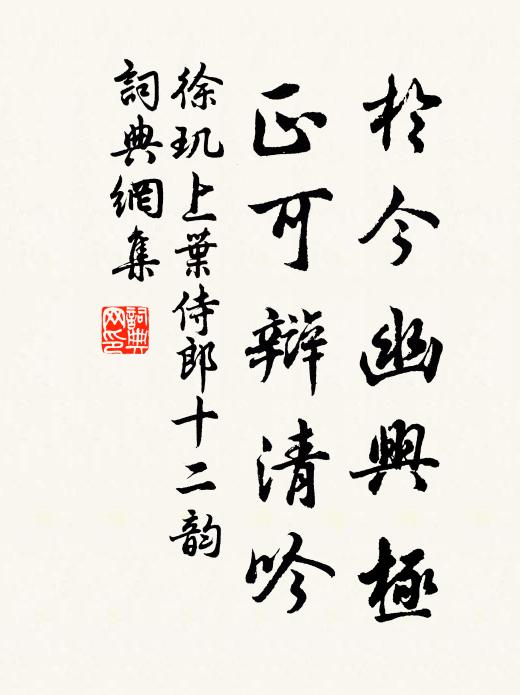 於今幽興極
正可辯清吟
徐玑上葉侍郎十二韵
詞典網集
詞典网印